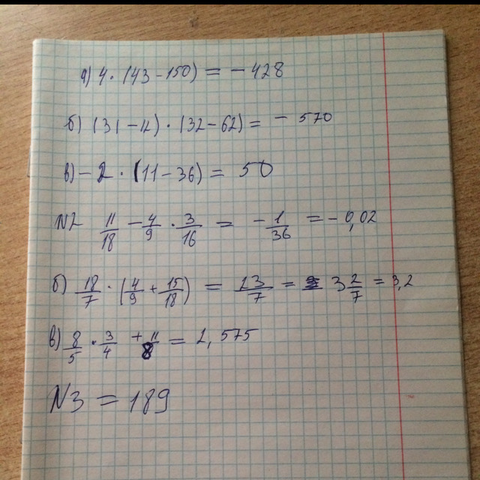 а) 4 · (43 - 150) = - 428
б) (31 - 12) · (32 - 62) = - 570
в) - 2 · (11 - 36) = 50
N2 11/18 - 4/9 · 3/16 = - 1/36 = - 0,02
б) 18/7 · (4/9 + 15/18) = 23/7 = 3 2/7 = 3,2
в) 8/5 · 3/4 + 11/8 = 2,575
N3 = 189